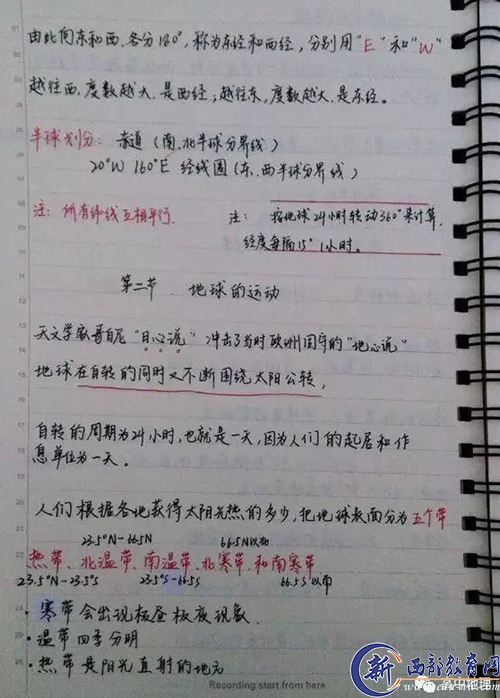 由此向东和西,各分180°,称为东经和西经,分别用"E"和"W"
越往西,度数越大,是西经;越往东,度数越大,是东经。
半球划分:赤道(南、北半球分界线)
20°W 160°E 经线圈(东、西半球分界线)
注:所有纬线互相平行.
注:按地球24小时转动360°来计算,
经度每隔15°1小时。
第二节 地球的运动
天文学家哥白尼"日心说"冲击了当时欧洲固守的"地心说"
地球在自转的同时又不断围绕太阳公转,
自转的周期为24小时,也就是一天,因为人们的起居和作
息单位为一天。
人们根据各地获得太阳光热的多少,把地球表面分为五个带
23.5°N-66.5N 66.5N以北
热带、北温带、南温带、北寒带、和南寒带
23.5°N-23.5°S 23.5°S-66.5S 66.5S以南
·寒带会出现极昼极夜现象.
·温带四季分明
·热带是阳光直射的地方
Recording start from here
新 西部教育网
高中地理